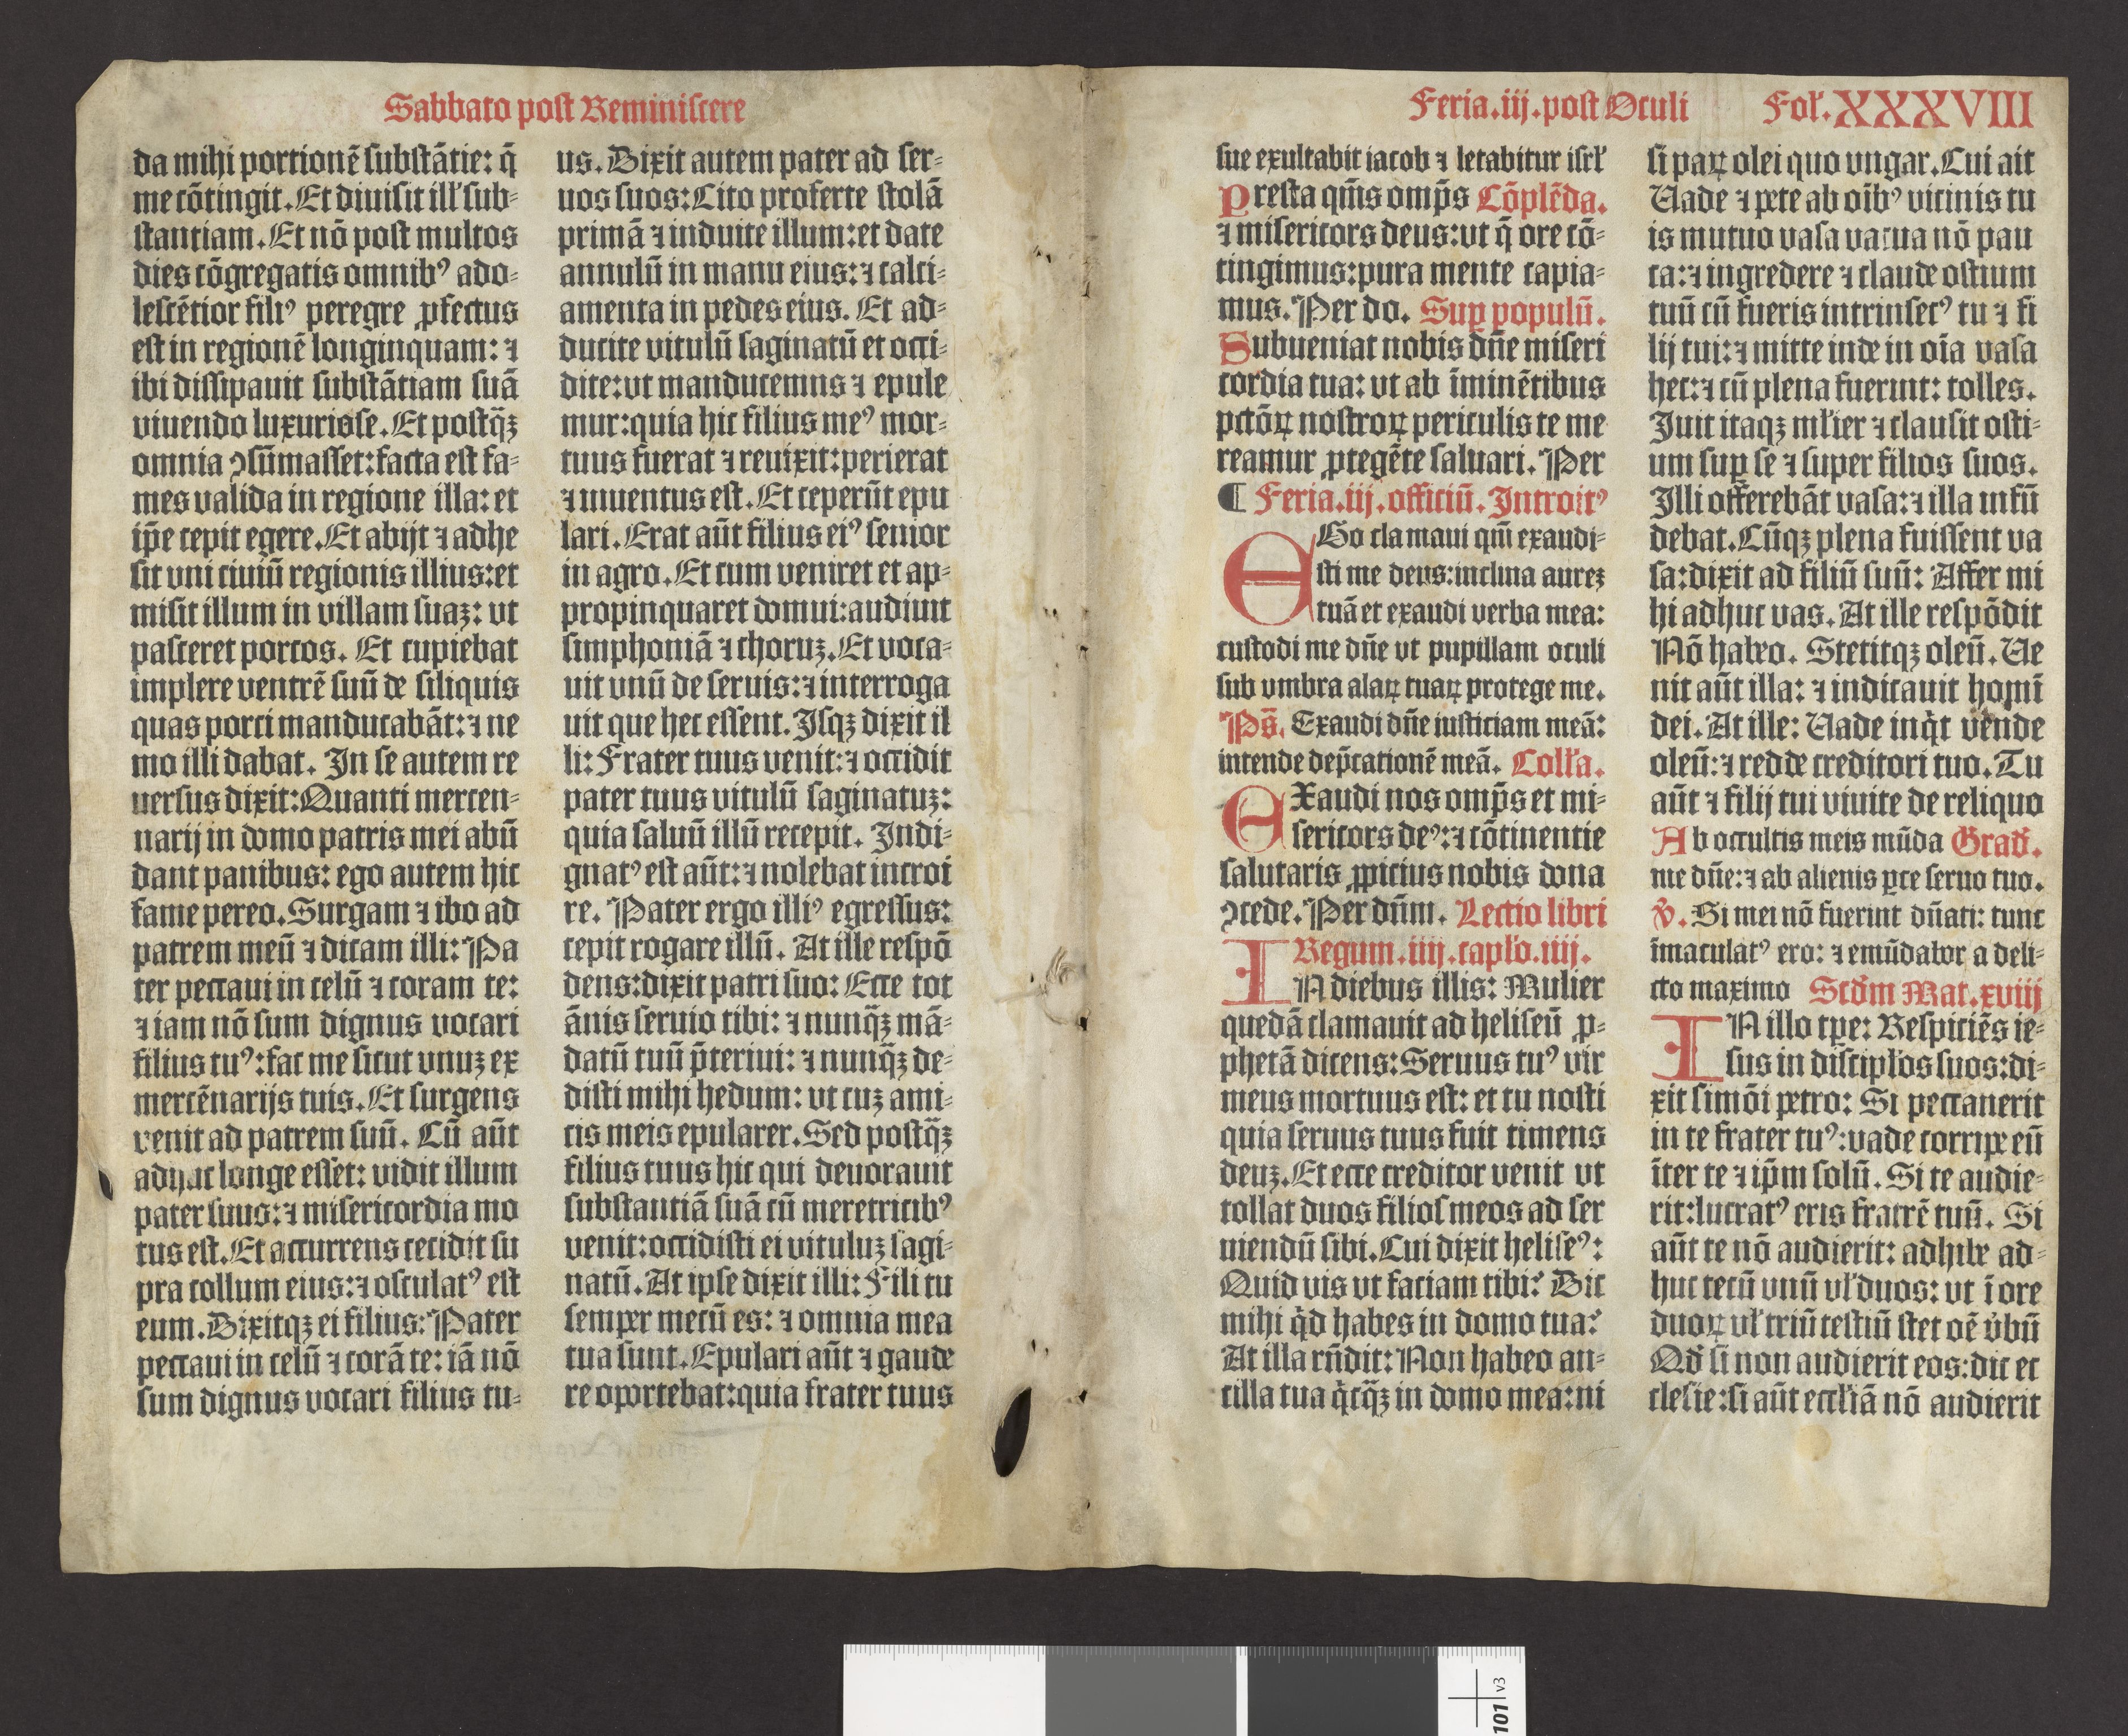 Sabbato post Reminiscere
da mihi portionē substātie: q̄
me cōtingit. Et diuisit ill̕ sub⸗
stantiam. Et nō post multos
dies cōgregatis omnibꝰ ado⸗
lescētior filiꝰ peregre ꝓfectus
est in regionē longinquam: ⁊
ibi dissipauit substātiam suā
viuendo luxuriose. Et postq̄ꝫ
omnia ꝯsūmasset: facta est fa⸗
mes valida in regione illa: et
ip̄e cepit egere. Et abijt ⁊ adhe
sit vni ciuiū regionis illius: et
misit illum in villam suaꝫ: vt
pasceret porcos. Et cupiebat
implere ventrē suū de siliquis
quas porci manducabāt: ⁊ ne
mo illi dabat. In se autem re
uersus dixit: Quanti mercen⸗
narij in domo patris mei abū
dant panibus: ego autem hic
fame pereo. Surgam ⁊ ibo ad
patrem meū ⁊ dicam illi: Pa
ter peccaui in celū ⁊ coram te:
⁊ iam nō sum dignus vocari
filius tuꝰ: fac me sicut vnuꝫ ex
mercēnarijs tuis. Et surgens
venit ad patrem suū. Cū aūt
adhuc longe esset: vidit illum
pater suus: ⁊ misericordia mo
tus est. Et accurrens cecidit su
pra collum eius: ⁊ osculatꝰ est
eum. Dixitqꝫ ei filius: Pater
peccaui in celū ⁊ corā te: iā nō
sum dignus vocari filius tu⸗
us. Dixit autem pater ad ser⸗
uos suos: Cito proferte stolā
primā ⁊ induite illum: et date
annulū in manu eius: ⁊ calci⸗
amenta in pedes eius. Et ad⸗
ducite vitulū saginatū et occi⸗
dite: vt manducemus ⁊ epule
mur: quia hic filius meꝰ mor⸗
tuus fuerat ⁊ reuixit: perierat
⁊ inuentus est. Et ceperūt epu
lari. Erat aūt filius eiꝰ senior
in agro. Et cum veniret et ap⸗
propinquaret domui: audiuit
simphoniā ⁊ choruꝫ. Et voca⸗
uit vnū de seruis: ⁊ interroga
uit que hec essent. Isqꝫ dixit il
li: Frater tuus venit: ⁊ occidit
pater tuus vitulū saginatuꝫ:
quia saluū illū recepit. Indi⸗
gnatꝰ est aūt: ⁊ nolebat introi
re. Pater ergo illiꝰ egressus:
cepit rogare illū. At ille respō
dens: dixit patri suo: Ecce tot
ānis seruio tibi: ⁊ nunq̄ꝫ mā⸗
datū tuū p̄teriui: ⁊ nunq̄ꝫ de⸗
disti mihi hedum: vt cuꝫ ami⸗
cis meis epularer. Sed postq̄ꝫ
filius tuus hic qui deuorauit
substantiā suā cū meretricibꝰ
venit: occidisti ei vituluꝫ sagi⸗
natū. At ipse dixit illi: Fili tu
semper mecū es: ⁊ omnia mea
tua sunt. Epulari aūt ⁊ gaude
re oportebat: quia frater tuus
Feria. iij. post Oculi Fol̕. XXXVIII
sue exultabit iacob ⁊ letabitur isrl̕
Presta qm̄s omp̄s Cōplēda.
⁊ misericors deus: vt q̄ ore cō⸗
tingimus: pura mente capia⸗
mus. Per do. Suꝑ populū.
Subueniat nobis dn̄e miseri
cordia tua: vt ab īminētibus
pctōꝝ nostroꝝ periculis te me
reamur ꝓtegēte saluari. Per
¶ Feria. iij. officiū. Introitꝰ
EGo clamaui qm̄ exaudi⸗
sti me deus: inclina aureꝫ
tuā et exaudi verba mea:
custodi me dn̄e vt pupillam oculi
sub vmbra alaꝝ tuaꝝ protege me.
Ps̄. Exaudi dn̄e iusticiam meā:
intende dep̄cationē meā. Coll̕a.
EXaudi nos omp̄s et mi⸗
sericors deꝰ: ⁊ cōtinentie
salutaris ꝓpicius nobis dona
ꝯcede. Per dn̄m. Lectio libri
Regum. iiij. capl̕o. iiij.
IN diebus illis: Mulier
quedā clamauit ad heliseū ꝓ⸗
phetā dicens: Seruus tuꝰ vir
meus mortuus est: et tu nosti
quia seruus tuus fuit timens
deuꝫ. Et ecce creditor venit vt
tollat duos filios meos ad ser
uiendū sibi. Cui dixit heliseꝰ:
Quid vis vt faciam tibi? Dic
mihi qd̕ habes in domo tua?
At illa rn̄dit: Non habeo an⸗
cilla tua qͥcq̄ꝫ in domo mea: ni
si paꝝ olei quo vngar. Cui ait
Uade ⁊ pete ab oībꝰ vicinis tu
is mutuo vasa vacua nō pau
ca: ⁊ ingredere ⁊ claude ostium
tuū cū fueris intrinsecꝰ tu ⁊ fi
lij tui: ⁊ mitte inde in oīa vasa
hec: ⁊ cū plena fuerint: tolles.
Iuit itaqꝫ ml̕ier ⁊ clausit osti⸗
um suꝑ se ⁊ super filios suos.
Illi offerebāt vasa: ⁊ illa infū
debat. Cūqꝫ plena fuissent va
sa: dixit ad filiū suū: Affer mi
hi adhuc vas. At ille respōdit
Nō habeo. Stetitqꝫ oleū. Ue
nit aūt illa: ⁊ indicauit homī
dei. At ille: Uade inqͥt vēnde
oleū: ⁊ redde creditori tuo. Tu
aūt ⁊ filij tui viuite de reliquo
Ab occultis meis mūda Grad̕.
me dn̄e: ⁊ ab alienis ꝑce seruo tuo.
℣. Si mei nō fuerint dn̄ati: tunc
īmaculatꝰ ero: ⁊ emūdabor a deli⸗
cto maximo Scd̕m Mat. xviij
IN illo tꝑe: Respiciēs ie⸗
sus in discipl̕os suos: di⸗
xit simōi petro: Si peccauerit
in te frater tuꝰ: vade corripe eū
īter te ⁊ ip̄m solū. Si te audie⸗
rit: lucratꝰ eris fratrē tuū. Si
aūt te nō audierit: adhibe ad⸗
huc tecū vnū vl̕ duos: vt ī ore
duoꝝ vl̕ triū testiū stet oē v̕bū
Qd̕ si non audierit eos: dic ec
clesie: si aūt eccl̕iā nō audierit